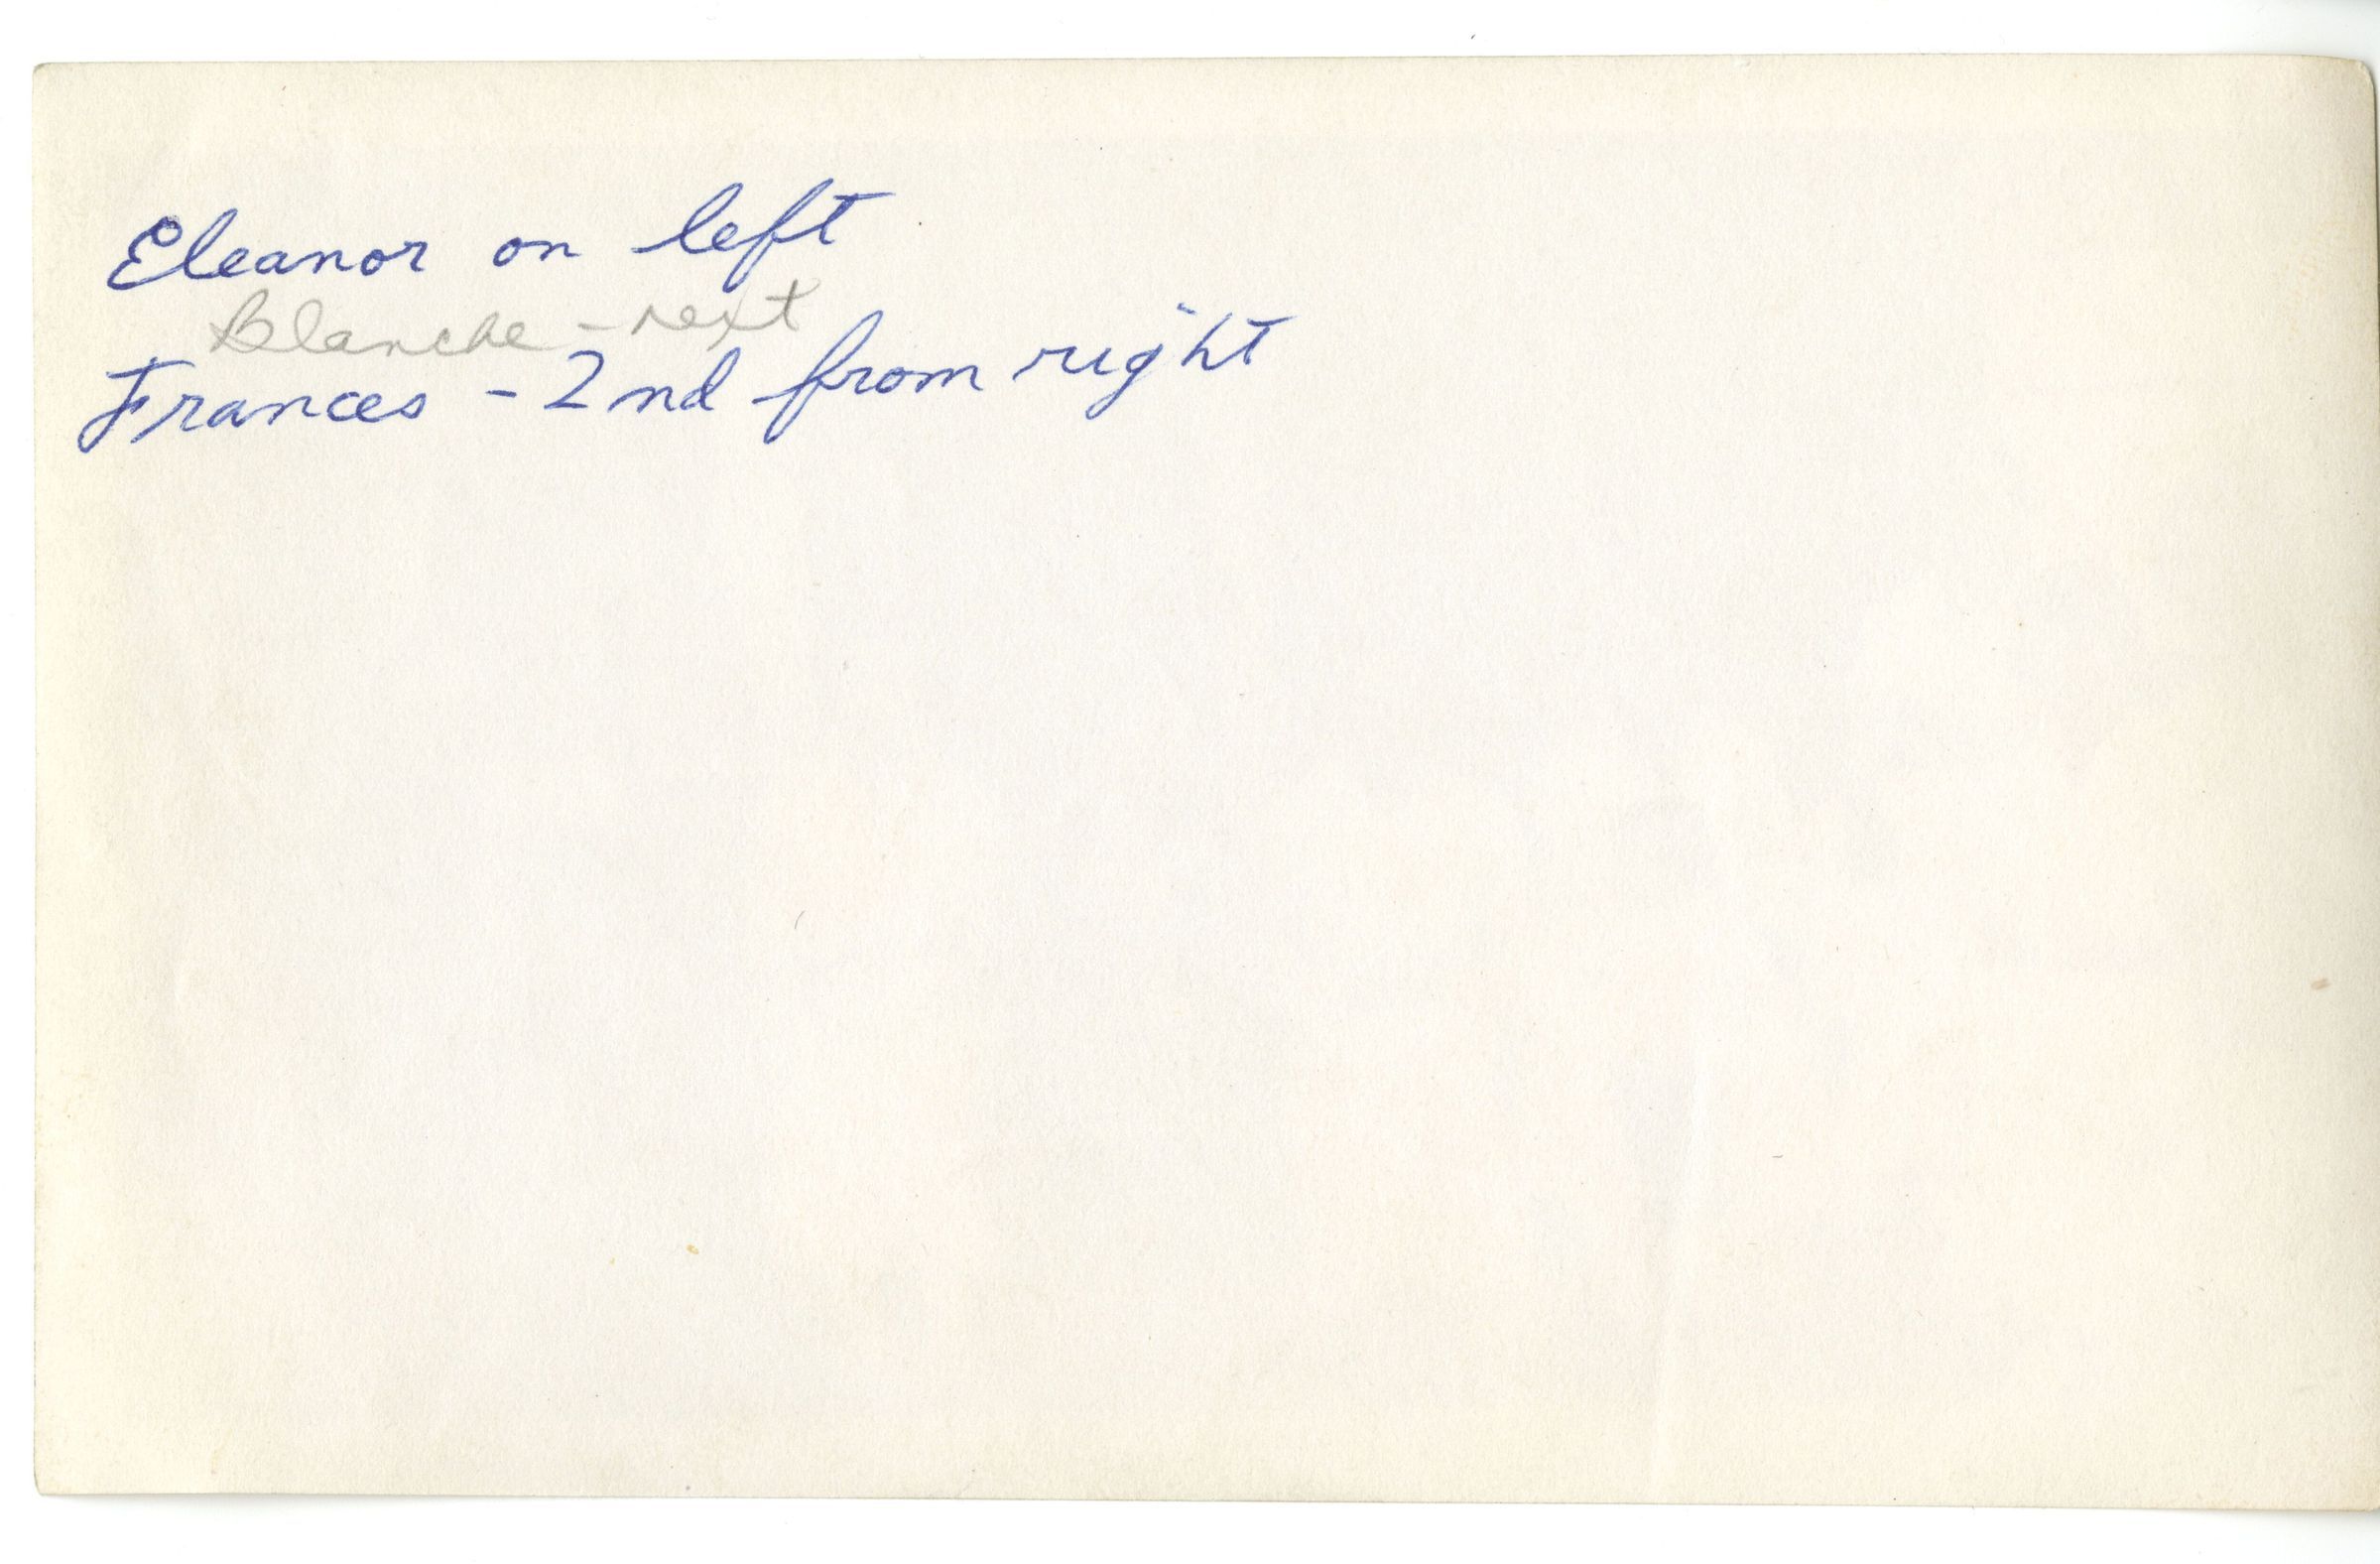 Eleanor on left
Blanche - next
Frances - 2nd from right